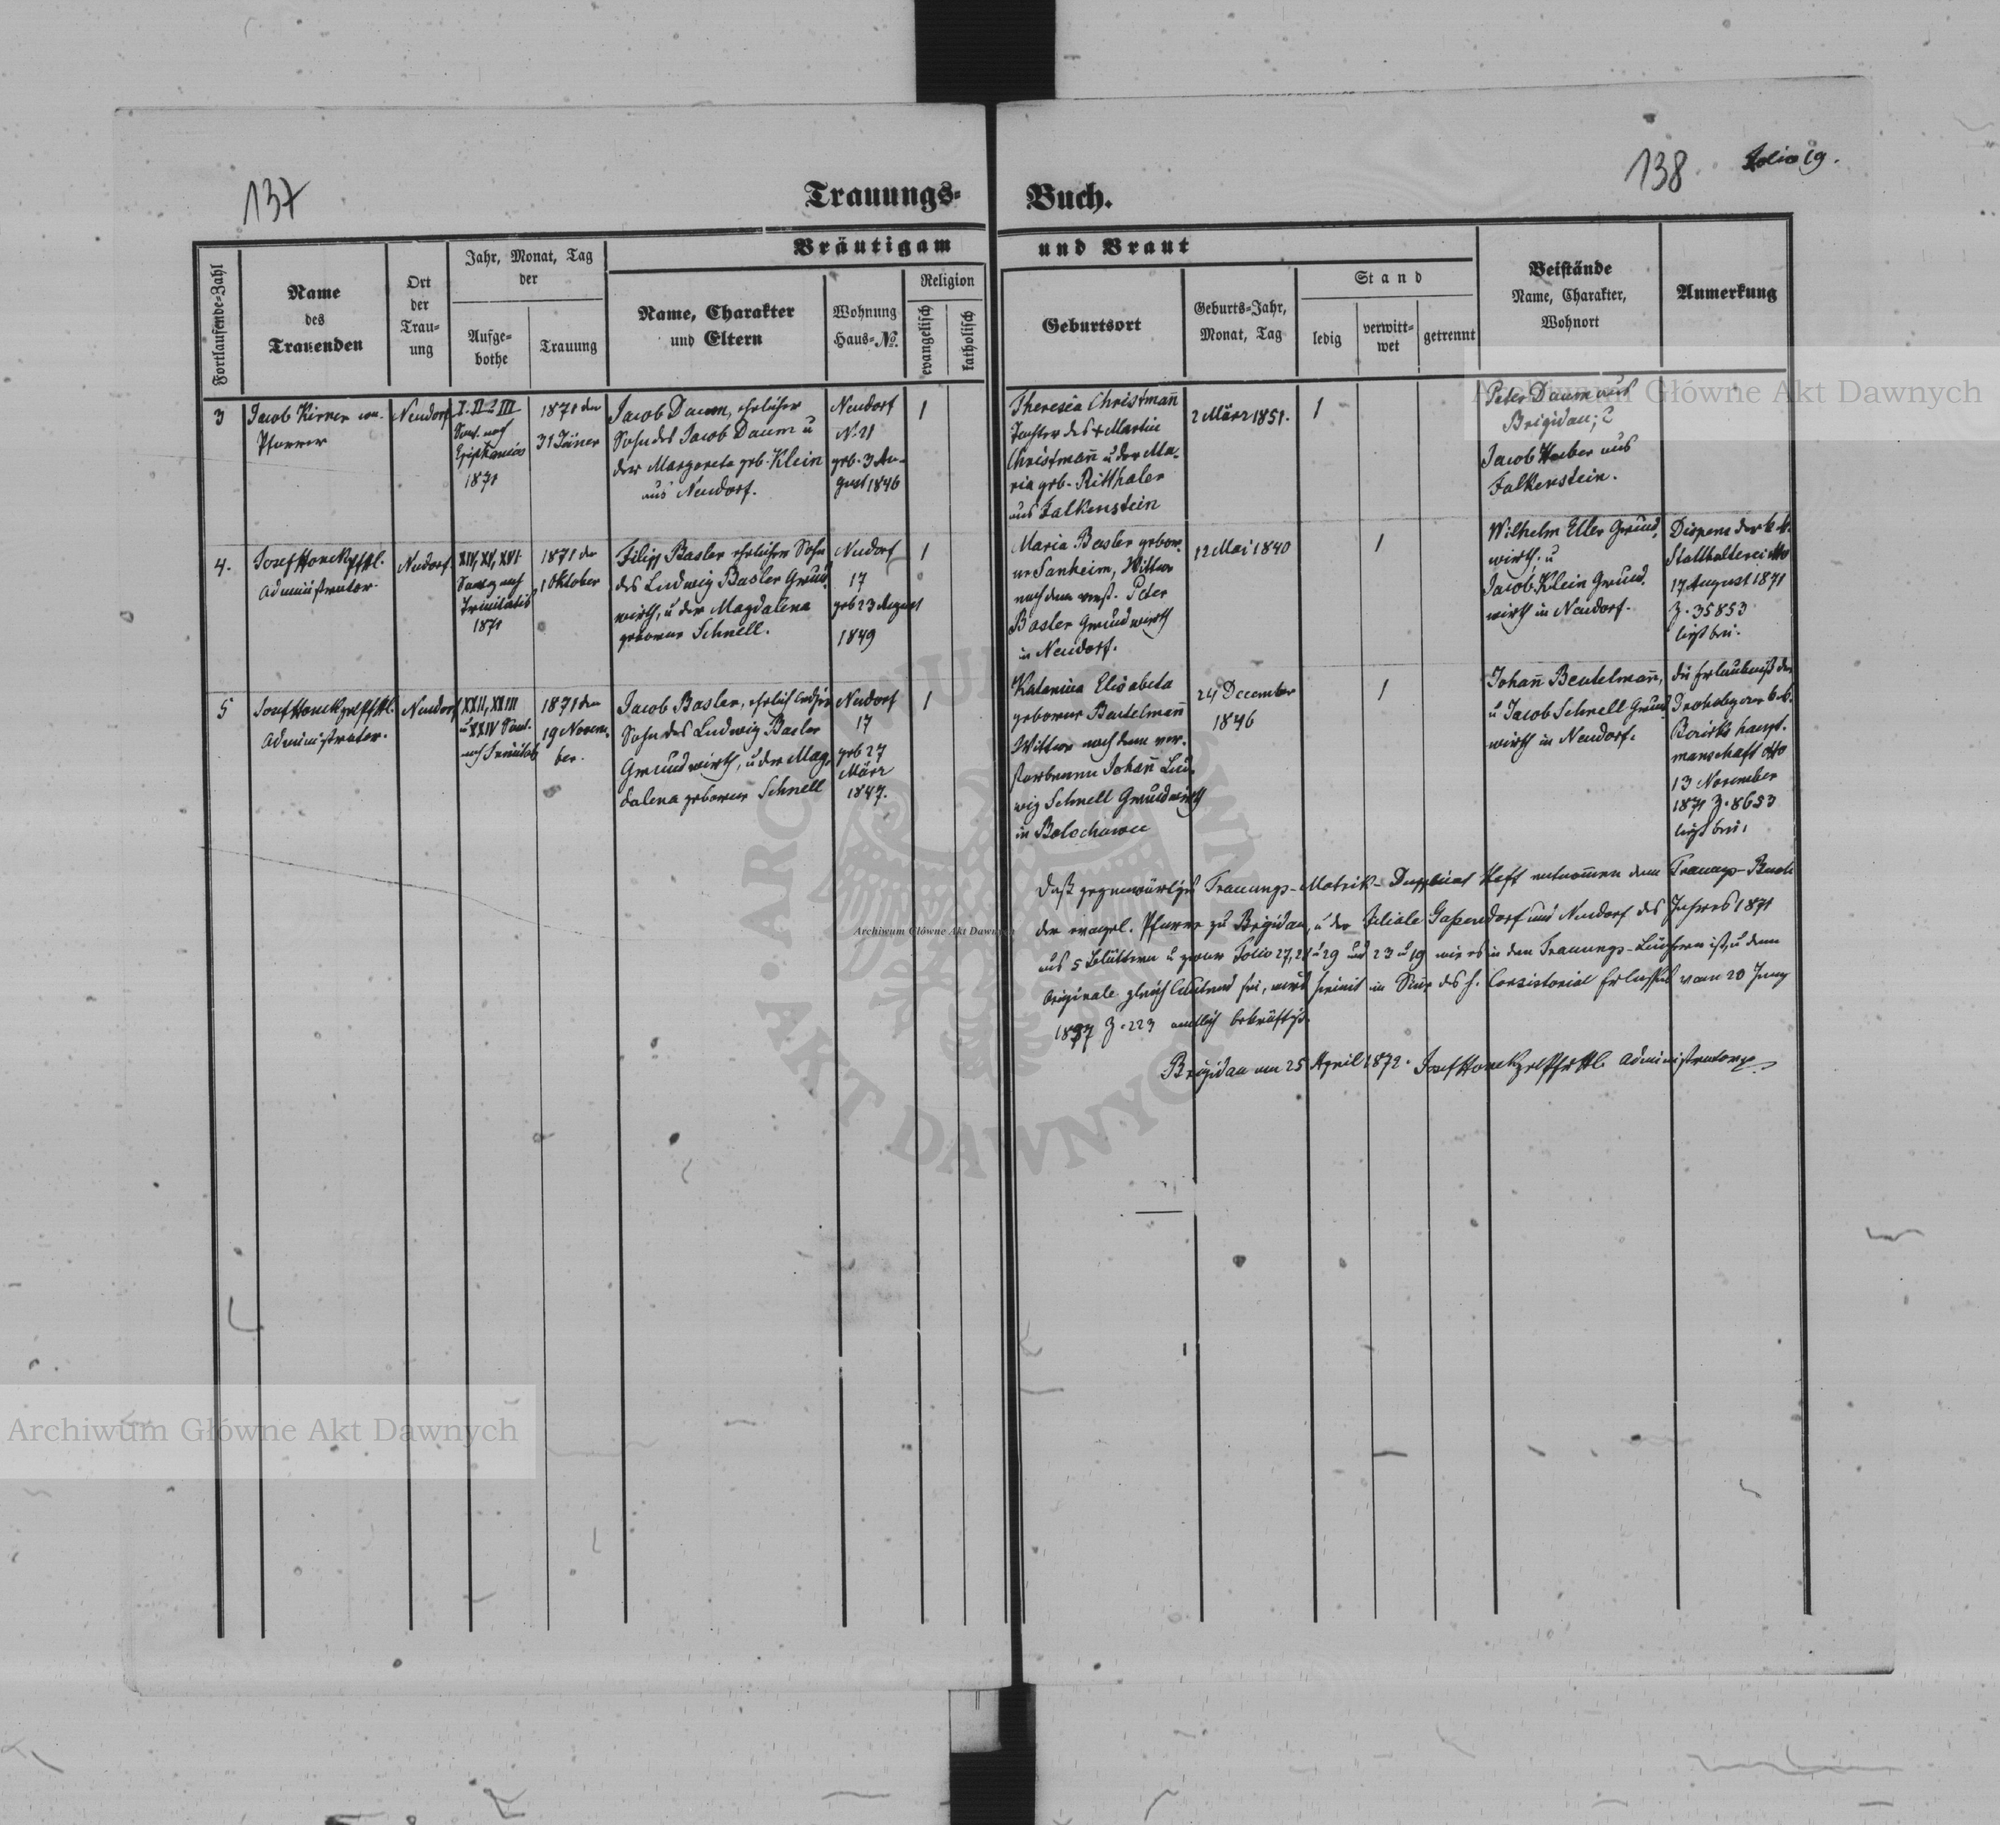 137
138
Folio 19.
Trauungs-Buch.
Bräutigam und Braut
Fortlaufende-Zahl
Name
des
Trauenden
Ort
der
Trau-
ung
Jahr, Monat, Tag
der
Aufge-
bothe
Trauung
Name, Charakter
und Eltern
Wohnung
Haus-No.
Religion
evangelisch
katholisch
Geburtsort
Geburts-Jahr,
Monat, Tag
Stand
ledig
verwitt-
wet
getrennt
Beistände
Name, Charakter,
Wohnort
Anmerkung
3
Jacob Kirner
Pfarrer
Neudorf
I. II u III
Sont. nach
Epiphanias
1871
1871 den
31 Jäner
Jacob Daum, ehrlicher
Sohn des Jacob Daum u
der Margareta geb. Klein
aus Neudorf.
Neudorf
N. 21
geb. 3 Au-
gust 1846
1
Theresia Christmañ
Tochter des + Martin
Christmañ u der Ma-
ria geb. Ritthaler
aus Falkenstein
2 März 1851.
1
Peter Daum aus
Brigidau; u
Jacob Weber aus
Falkenstein.
4.
Josef Honck
Administrator
Neudorf
XIV, XV, XVI
Sontag nach
Trinitatis
1871
1871 den
1 Oktober
Filipp Basler ehrlicher Sohn
des Ludwig Basler Grund-
wirth, u der Magdalena
geborene Schnell.
Neudorf
17
geb 23 August
1849
1
Maria Basler gebor-
ne Sanheim, Wittwe
nach dem verst. Peter
Basler Grundwirth
in Neudorf.
12 Mai 1840
1
Wilhelm Eller Grund-
wirth; u
Jacob Klein Grund-
wirth in Neudorf.
Dispens der k. k.
Statthalterei dtto
17 August 1871
Z. 35853
liegt bei.
5
Josef Honck
Administrator.
Neudorf
XXII, XXIII
u XXIV Sont.
nach Trinitatis
1871 den
19 Novem-
ber.
Jacob Basler, ehrlich lediger
Sohn des Ludwig Basler
Grundwirth, u der Mag-
dalena geborene Schnell
Neudorf
17
geb 27
März
1847.
1
Katarina Elisabeta
geborene Beutelmañ
Wittwe nach dem ver-
storbenen Johañ Lud-
wig Schnell Grundwirth
in Bolechowce
24 December
1846
1
Johañ Beutelmañ,
u Jacob Schnell Grund-
wirth in Neudorf.
Die Erlaubniß der
Drohobyczer k. k.
Bezirks haupt-
manschaft dtto
13 November
1871 Z. 8653
liegt bei.
Daß gegenwärtiges Trauungs-Matrik-Duplicat Heft entnommen dem Trauungs-Buch
der evangel. Pfarre zu Brigidau, u der Filiale Gassendorf und Neudorf des Jahres 1871
aus 5 Blättern u zwar Folio 27, 28 u 29 und 23 u 19 wie es in den Trauungs-Büchern ist, u dem
Originale gleich lautend sei, wird hiemit im Sinne des h. Consistorial Erlasses vom 20 Juny
1837 Z. 223 amtlich bekräftigt.
Brigidau am 25 April 1872. Josef Honck Administrator
Archiwum Główne Akt Dawnych
Archiwum Główne Akt Dawnych
Archiwum Główne Akt Dawnych